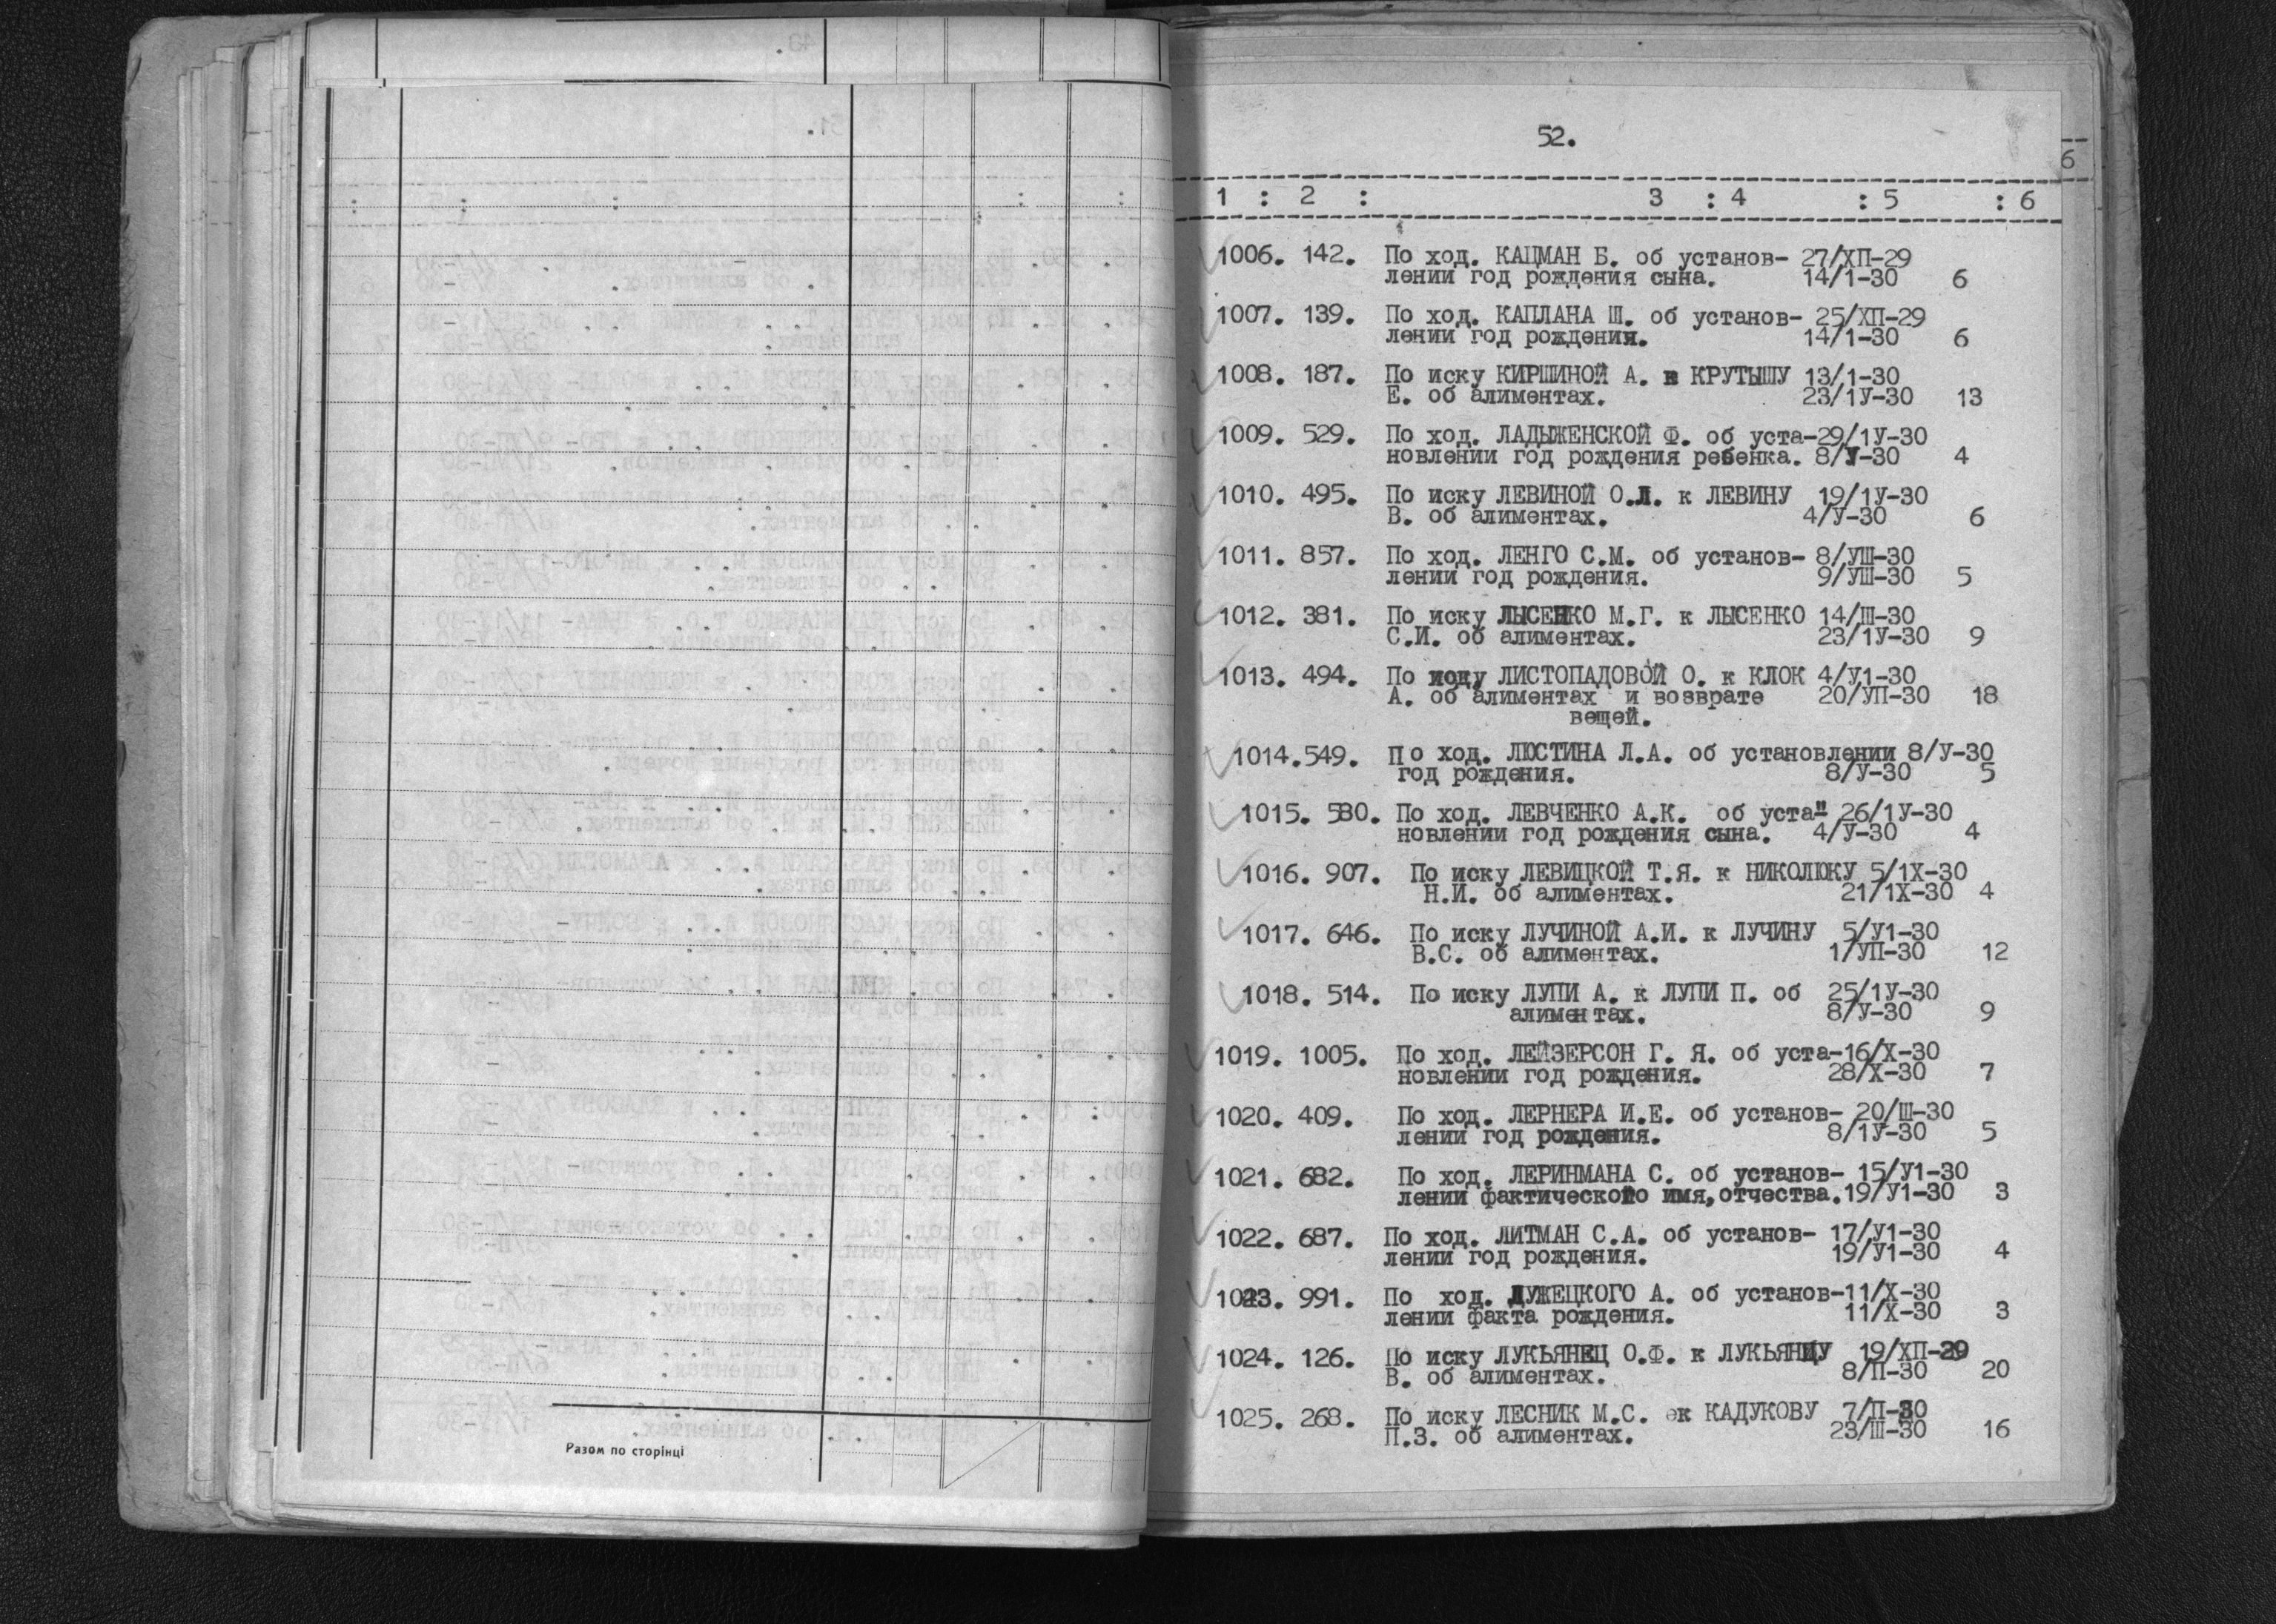 52.
6
1 : 2 : 3 : 4 : 5 : 6
1006. 142. По ход. КАЦМАН Б. об установ- 27/ХП-29
лении год рождения сына. 14/1-30 6
1007. 139. По ход. КАПЛАНА Ш. об установ- 25/ХП-29
лении год рождения. 14/1-30 6
1008. 187. По иску КИРШИНОЙ А. к КРУТЫШУ 13/1-30
Е. об алиментах. 23/1У-30 13
1009. 529. По ход. ЛАДЫЖЕНСКОЙ Ф. об уста-29/1У-30
новлении год рождения ребенка. 8/У-30 4
1010. 495. По иску ЛЕВИНОЙ О.Л. к ЛЕВИНУ 19/1У-30
В. об алиментах. 4/У-30 6
1011. 857. По ход. ЛЕНГО С.М. об установ- 8/УШ-30
лении год рождения. 9/УШ-30 5
1012. 381. По иску ЛЫСЕНКО М.Г. к ЛЫСЕНКО 14/Ш-30
С.И. об алиментах. 23/1У-30 9
1013. 494. По иску ЛИСТОПАДОВОЙ О. к КЛОК 4/У1-30
А. об алиментах и возврате 20/УП-30 18
вещей.
1014.549. По ход. ЛЮСТИНА Л.А. об установлении 8/У-30
год рождения. 8/У-30 5
1015. 580. По ход. ЛЕВЧЕНКО А.К. об уста" 26/1У-30
новлении год рождения сына. 4/У-30 4
1016. 907. По иску ЛЕВИЦКОЙ Т.Я. к НИКОЛЮКУ 5/1Х-30
Н.И. об алиментах. 21/1Х-30 4
1017. 646. По иску ЛУЧИНОЙ А.И. к ЛУЧИНУ 5/У1-30
В.С. об алиментах. 1/УП-30 12
1018. 514. По иску ЛУПИ А. к ЛУПИ П. об 25/1У-30
алиментах. 8/У-30 9
1019. 1005. По ход. ЛЕЙЗЕРСОН Г. Я. об уста-16/Х-30
новлении год рождения. 28/Х-30 7
1020. 409. По ход. ЛЕРНЕРА И.Е. об установ- 20/Ш-30
лении год рождения. 8/1У-30 5
1021. 682. По ход. ЛЕРИНМАНА С. об установ- 15/У1-30
лении фактического имя,отчества.19/У1-30 3
1022. 687. По ход. ЛИТМАН С.А. об установ- 17/У1-30
лении год рождения. 19/У1-30 4
1023. 991. По ход. ЛУЖЕЦКОГО А. об установ-11/Х-30
лении факта рождения. 11/Х-30 3
1024. 126. По иску ЛУКЬЯНЕЦ О.Ф. к ЛУКЬЯНЦУ 19/ХП-29
В. об алиментах. 8/П-30 20
1025. 268. По иску ЛЕСНИК М.С. к КАДУКОВУ 7/П-30
П.З. об алиментах. 23/Ш-30 16
Разом по сторінці